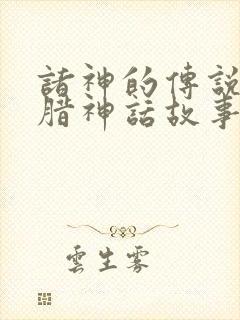 諸神的傳說
腊神話故事
雲生霧